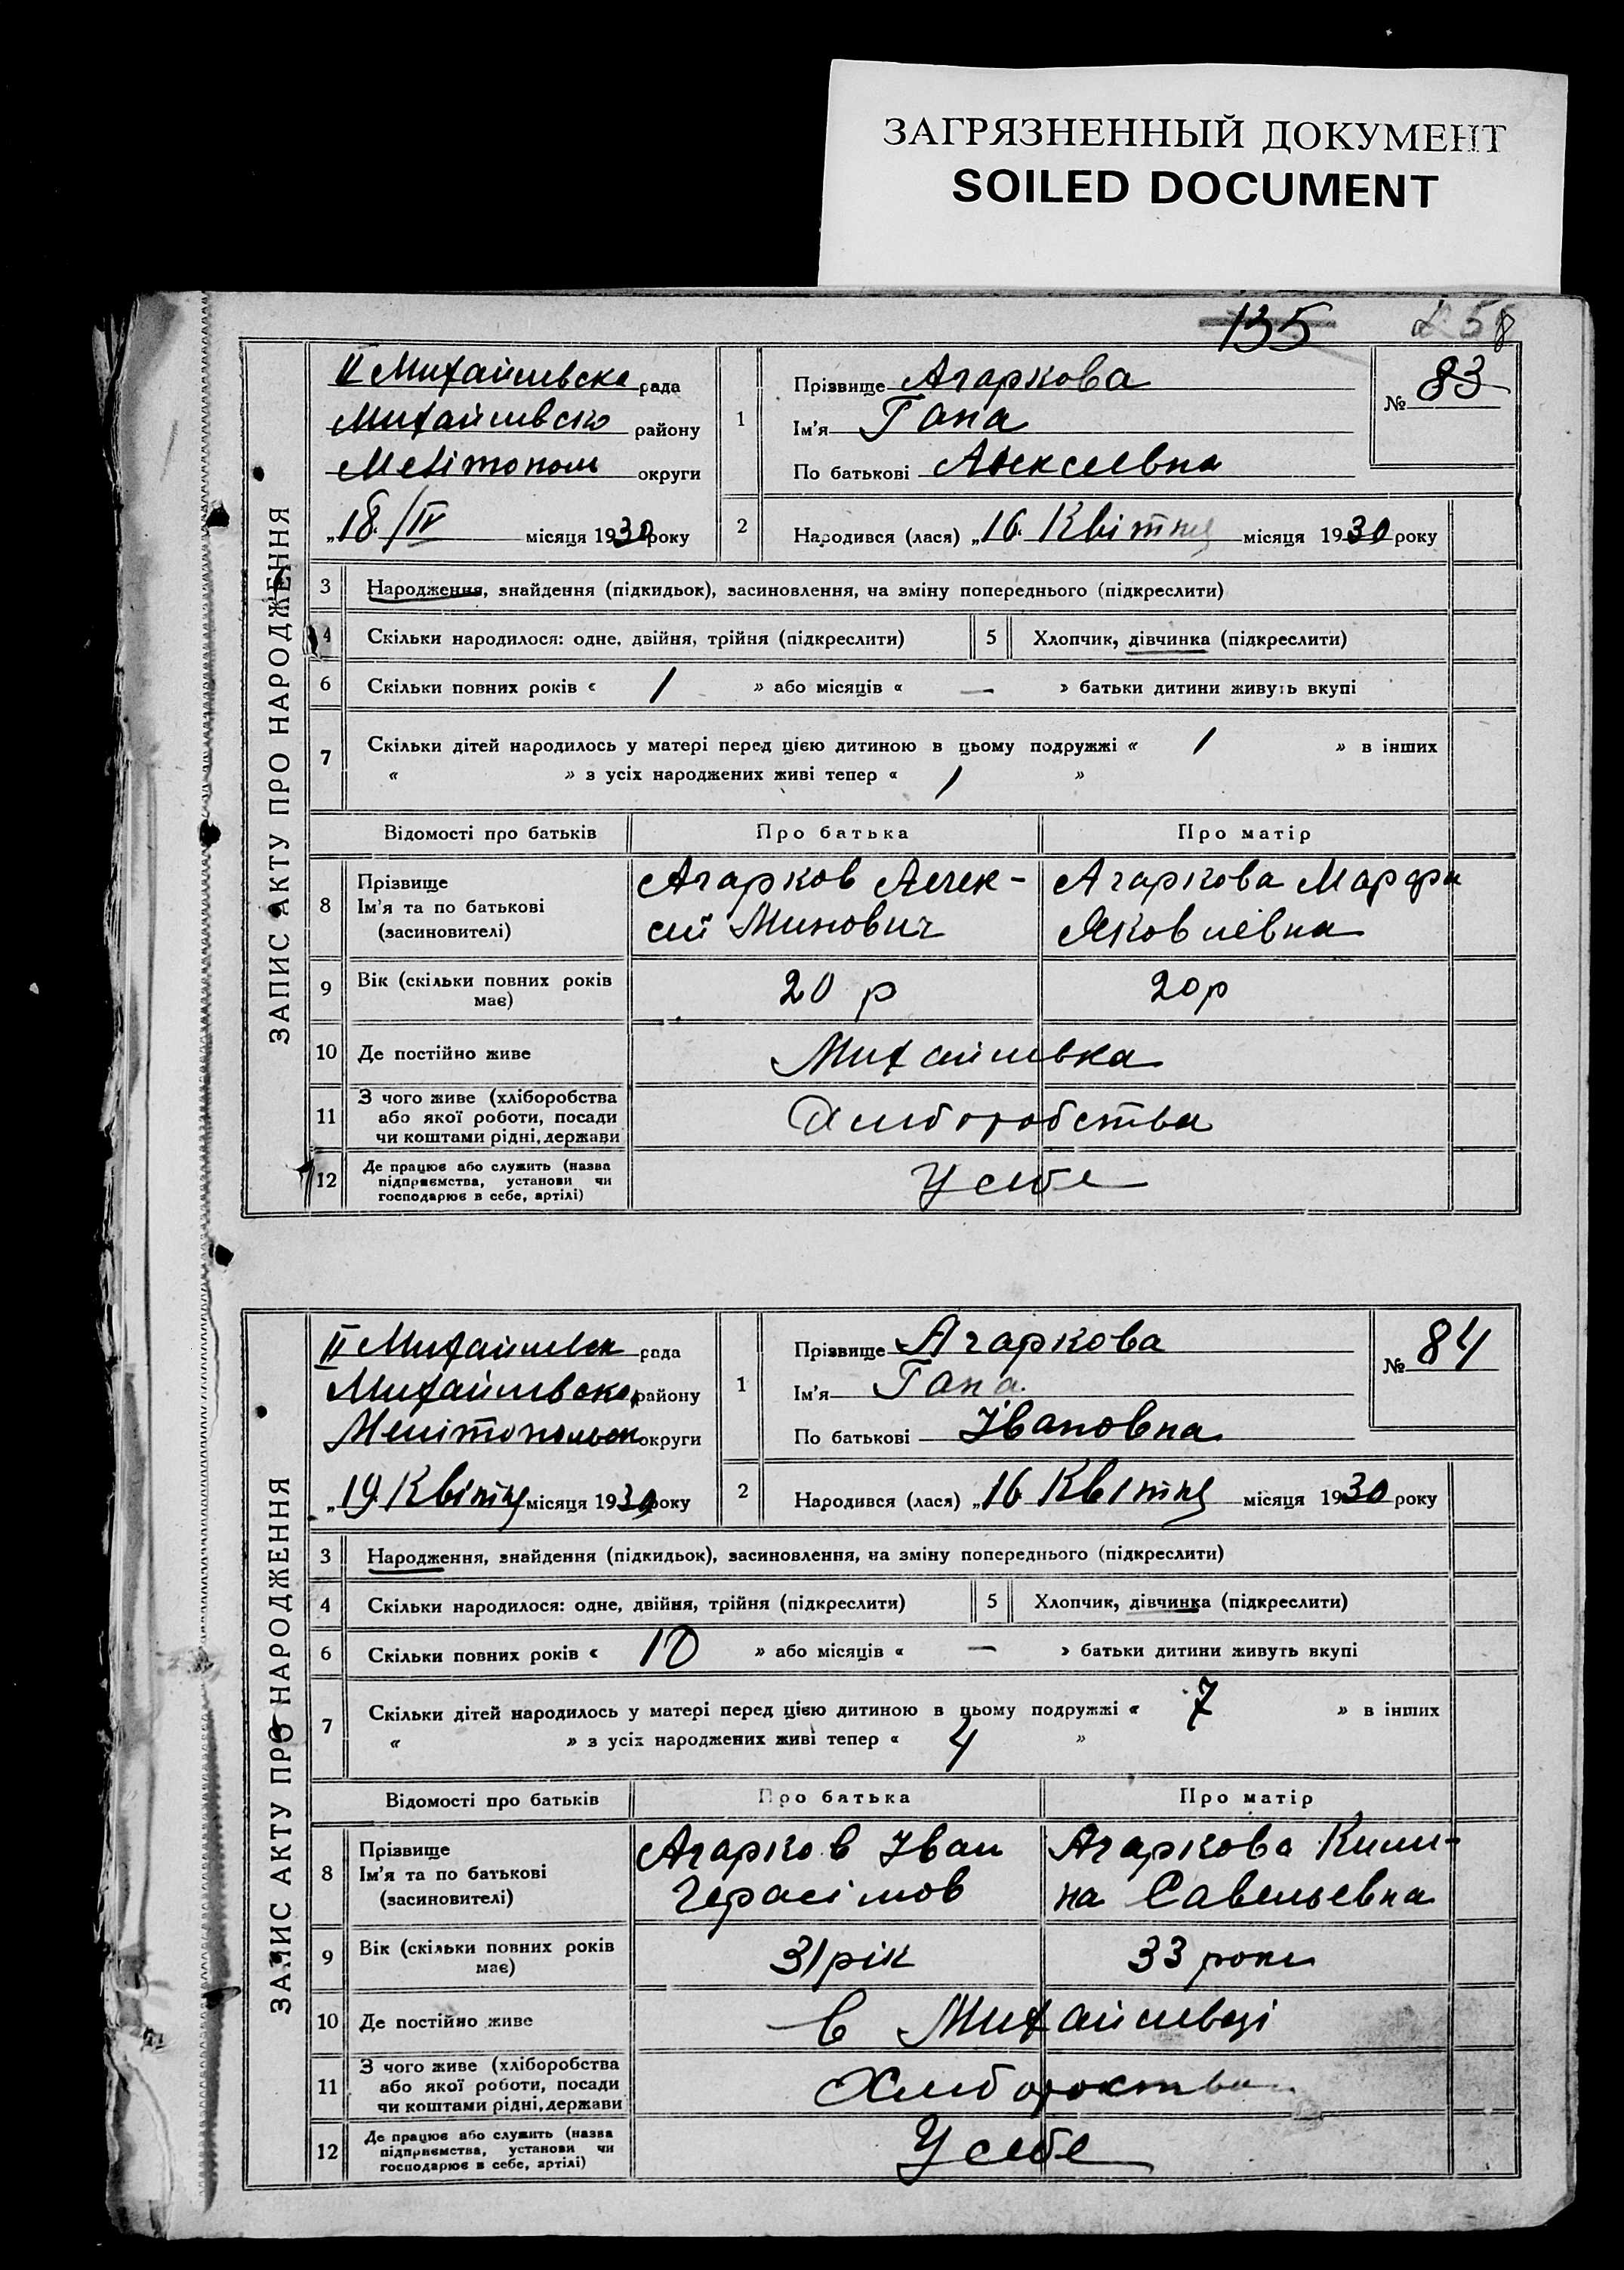 ЗАГРЯЗНЕННЫЙ ДОКУМЕНТ
SOILED DOCUMENT
135 258
ЗАПИС АКТУ ПРО НАРОДЖЕННЯ
II Михайлівська рада
Михайлівсько району
Мелітополь округи
„18/IV місяця 1930 року
1 Прізвище Агаркова
Ім'я Гана
По батькові Алексеевна
№ 83
2 Народився (лася) „16 Квітня місяця 1930 року
3 Народження, знайдення (підкидьок), засиновлення, на зміну попереднього (підкреслити)
4 Скільки народилося: одне, двійня, трійня (підкреслити) 5 Хлопчик, дівчинка (підкреслити)
6 Скільки повних років « 1 » або місяців « — » батьки дитини живуть вкупі
7 Скільки дітей народилось у матері перед цією дитиною в цьому подружжі « 1 » в інших
« » з усіх народжених живі тепер « 1 »
Відомості про батьків Про батька Про матір
8 Прізвище Ім'я та по батькові (засиновителі)
Агарков Алек-
сій Минович
Агаркова Марфа
Яковлевна
9 Вік (скільки повних років має) 20 р 20 р
10 Де постійно живе Михайлівка
11 З чого живе (хліборобства
або якої роботи, посади
чи коштами рідні, держави
Хліборобства
12 Де працює або служить (назва
підприємства, установи чи
господарює в себе, артілі)
У себе
ЗАПИС АКТУ ПРО НАРОДЖЕННЯ
II Михайлівск рада
Михайлівсько району
Мелітопольск округи
„19 Квітня місяця 1930 року
1 Прізвище Агаркова
Ім'я Гана
По батькові Івановна
№ 84
2 Народився (лася) „16 Квітня місяця 1930 року
3 Народження, знайдення (підкидьок), засиновлення, на зміну попереднього (підкреслити)
4 Скільки народилося: одне, двійня, трійня (підкреслити) 5 Хлопчик, дівчинка (підкреслити)
6 Скільки повних років « 10 » або місяців « — » батьки дитини живуть вкупі
7 Скільки дітей народилось у матері перед цією дитиною в цьому подружжі « 7 » в інших
« » з усіх народжених живі тепер « 4 »
Відомості про батьків Про батька Про матір
8 Прізвище Ім'я та по батькові (засиновителі)
Агарков Іван
Герасімов
Агаркова
Савельевна
9 Вік (скільки повних років має) 31 рік 33 роки
10 Де постійно живе в Михайлівці
11 З чого живе (хліборобства
або якої роботи, посади
чи коштами рідні, держави
12 Де працює або служить (назва
підприємства, установи чи
господарює в себе, артілі)
У себе